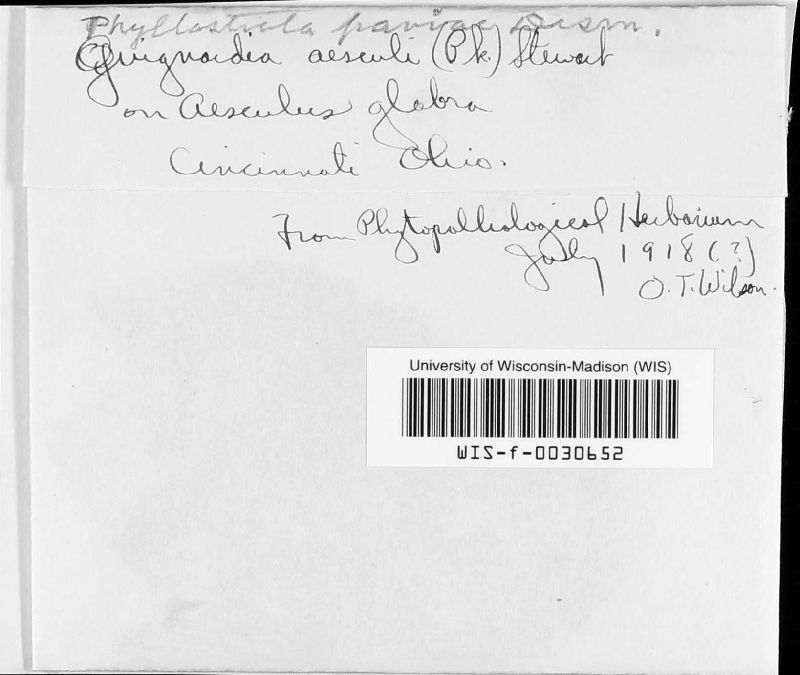 Phyllosticta paviae Desm.
Guignardia aesculi (Pk.) Stewart
on Aesculus glabra
Cincinnati Ohio.
From Phytopathological Herbarium
July 1918 (?)
O. T. Wilson.
University of Wisconsin-Madison (WIS)
WIS-f-0030652